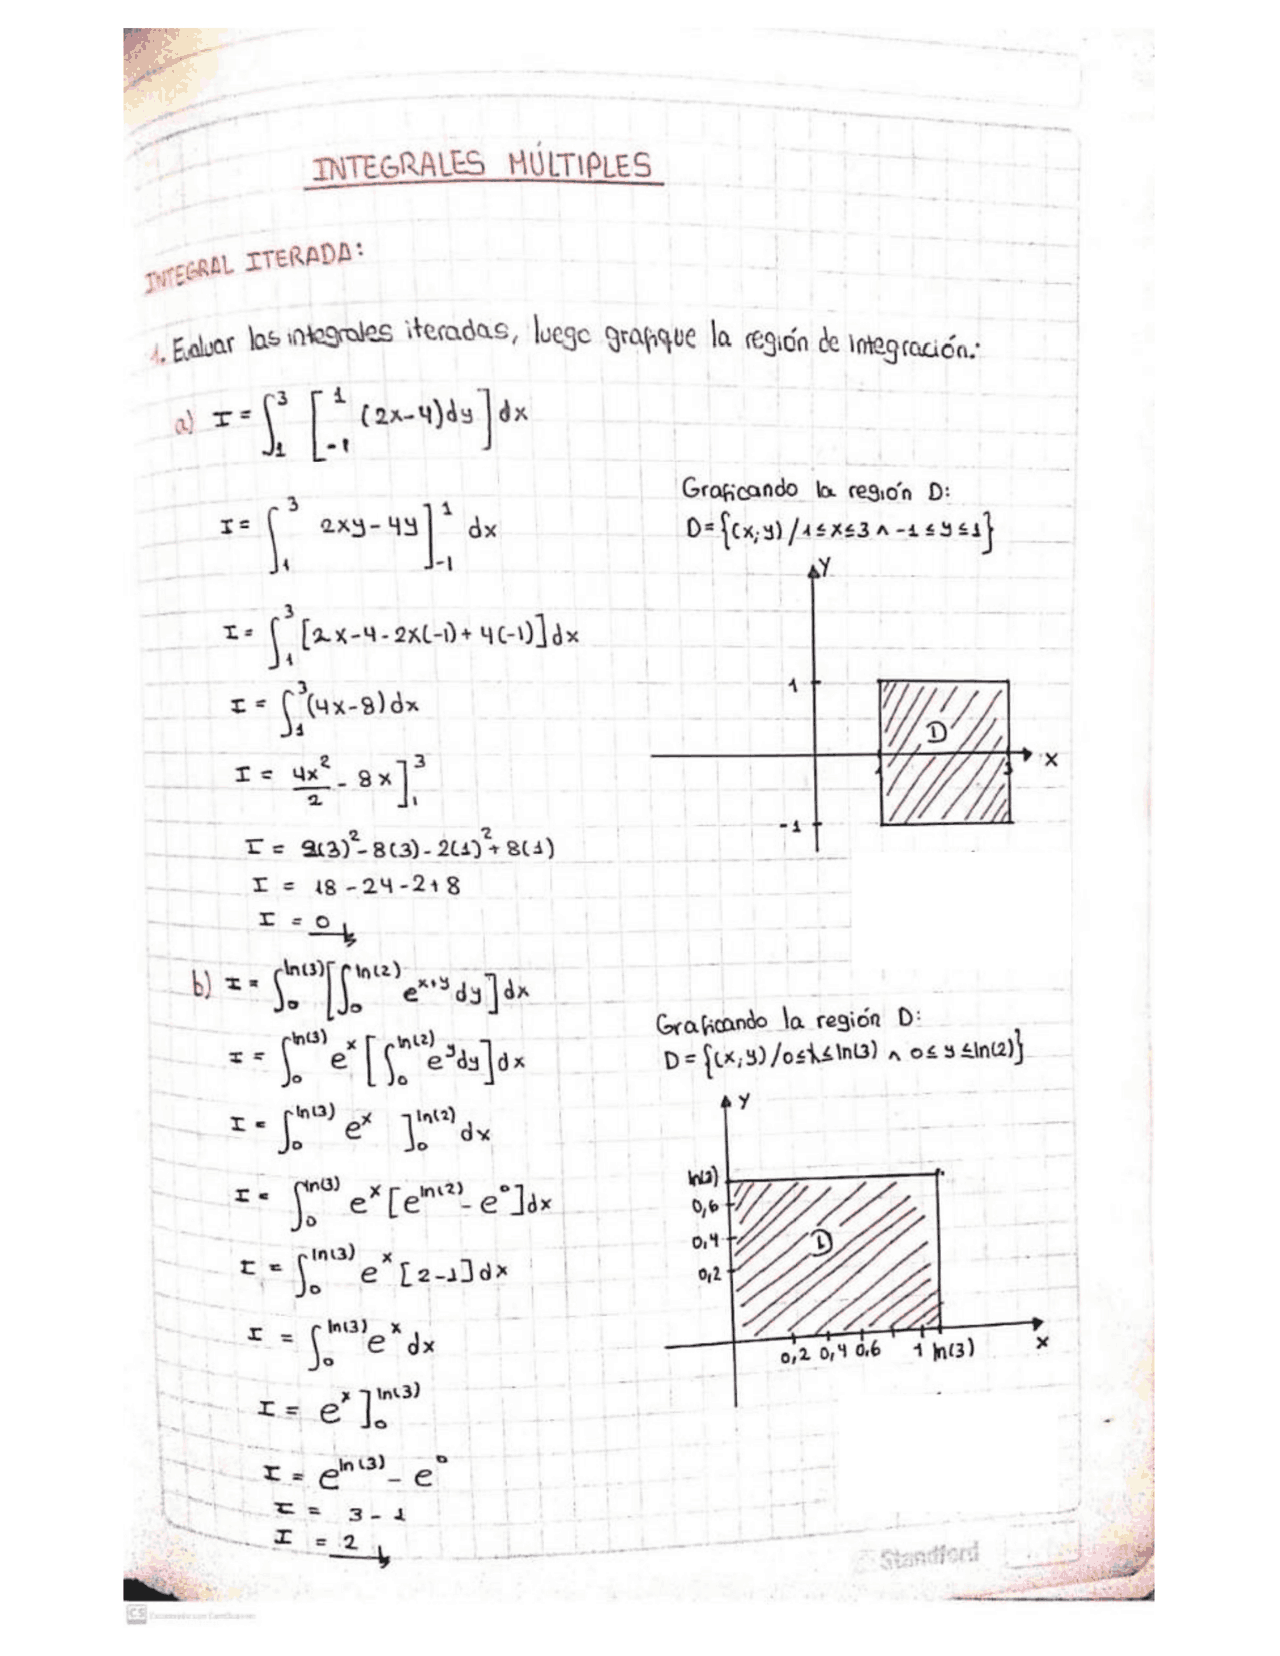 INTEGRALES MÚLTIPLES
INTEGRAL ITERADA:
1. Evaluar las integrales iteradas, luego grafique la región de integración.:
a) I = ∫₁³ [ ₋₁¹ (2x-4)dy ] dx
I = ∫₁³ 2xy - 4y ]₋₁¹ dx
I = ∫₁³ [2x-4-2x(-1)+4(-1)]dx
I = ∫₁³ (4x-8)dx
I = 4x²/2 - 8x ]₁³
I = 2(3)²-8(3)-2(1)²+8(1)
I = 18-24-2+8
I = 0
Graficando la región D:
D={(x;y)/1≤x≤3 ∧ -1≤y≤1}
Y
1
D
1 3 X
-1
b) I = ∫₀^ln(3) [∫₀^ln(2) e^x+y dy] dx
I = ∫₀^ln(3) e^x [∫₀^ln(2) e^y dy] dx
I = ∫₀^ln(3) e^x ]₀^ln(2) dx
I = ∫₀^ln(3) e^x [e^ln(2) - e^0]dx
I = ∫₀^ln(3) e^x [2-1]dx
I = ∫₀^ln(3) e^x dx
I = e^x ]₀^ln(3)
I = e^ln(3) - e^0
I = 3 - 1
I = 2
Graficando la región D:
D={(x,y)/0≤x≤ln(3) ∧ 0≤y≤ln(2)}
Y
ln(2)
0,6
0,4 D
0,2
0,2 0,4 0,6 1 ln(3) X
Standford
CS Escaneado con CamScanner